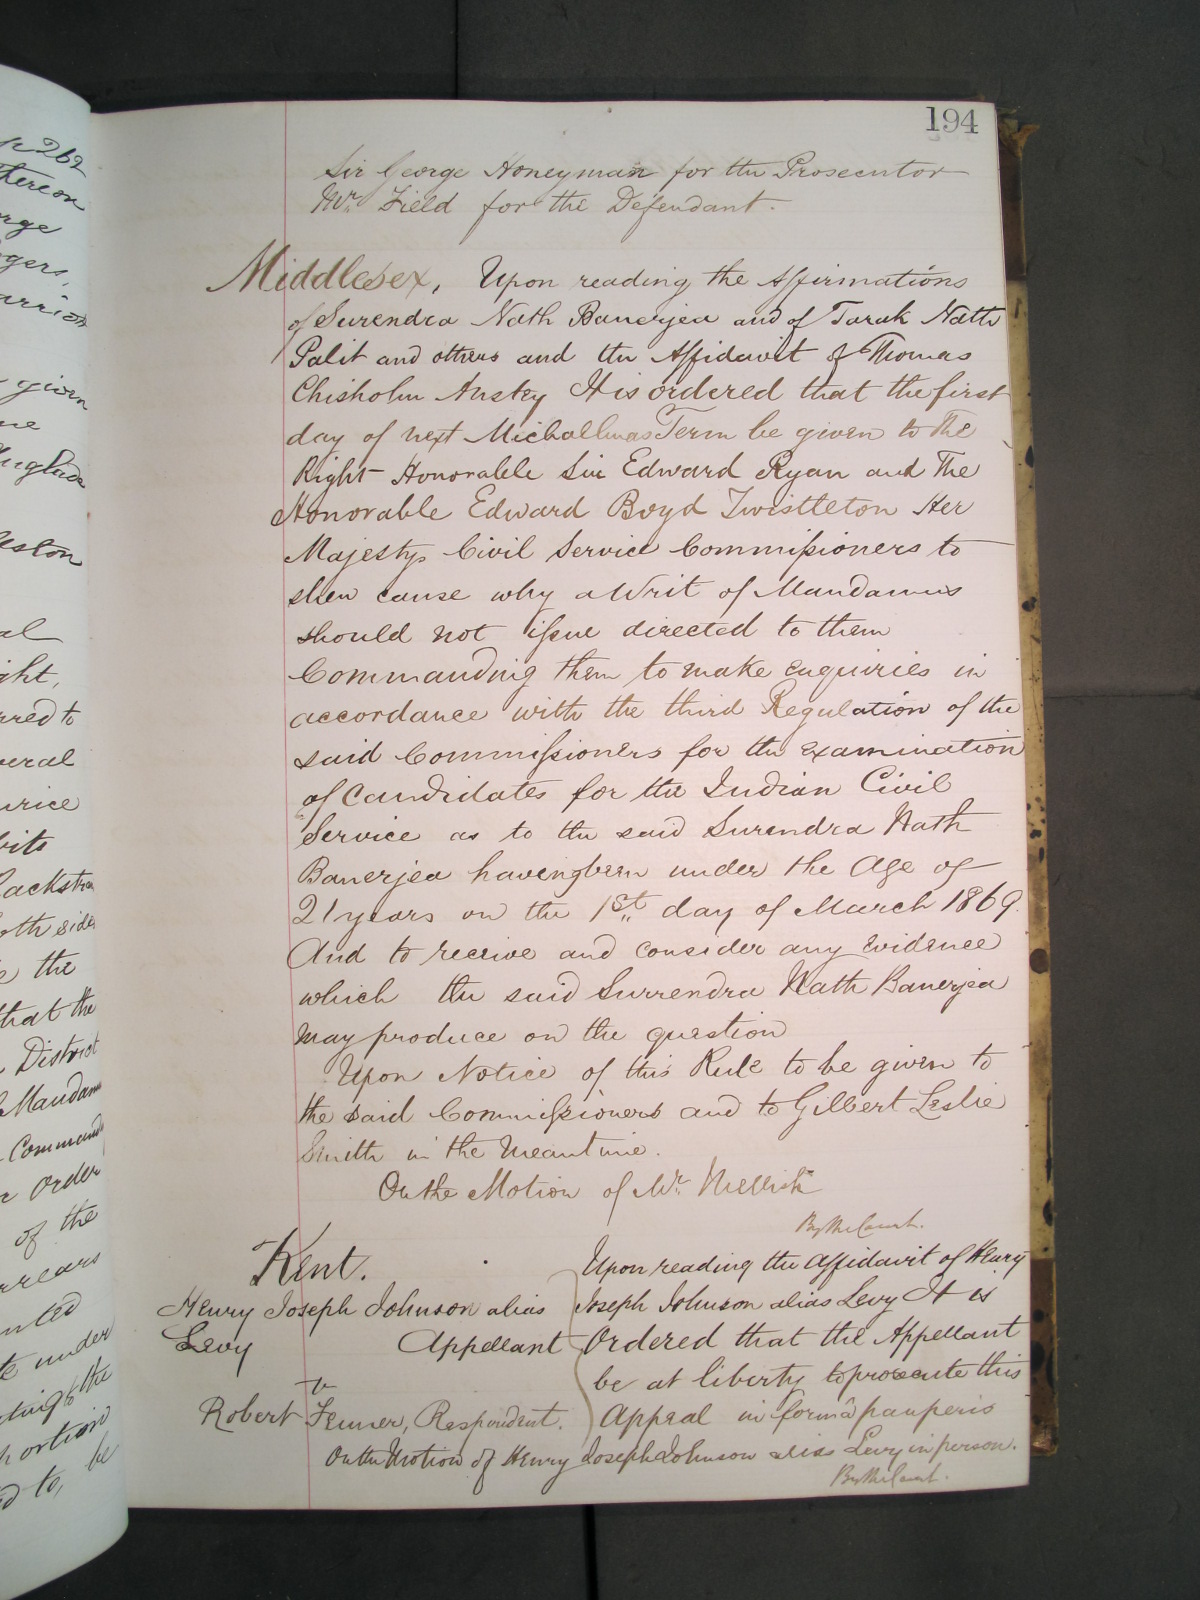 194
Sir George Honeyman for the Prosecutor
Mr. Field for the Defendant.
Middlesex, Upon reading the Affirmations
of Surendra Nath Banerjea and of Tarak Nath
Palit and others and the Affidavit of Thomas
Chisholm Anstey It is ordered that the first
day of next Michaelmas Term be given to The
Right Honorable Sir Edward Ryan and The
Honorable Edward Boyd Twistleton Her
Majestys Civil Service Commissioners to
shew cause why a Writ of Mandamus
should not issue directed to them
Commanding them to make enquiries in
accordance with the third Regulation of the
said Commissioners for the examination
of Candidates for the Indian Civil
Service as to the said Surendra Nath
Banerjea having been under the Age of
21 years on the 1st day of March 1869.
And to receive and consider any evidence
which the said Surrendra Nath Banerjea
may produce on the question
Upon Notice of this Rule to be given to
the said Commissioners and to Gilbert Leslie
Smith in the Meantime.
On the Motion of Mr. Mellish
By the Court.
Kent.
Henry Joseph Johnson alias
Levy Appellant
v
Robert Femer, Respondent.
Upon reading the Affidavit of Henry
Joseph Johnson alias Levy It is
Ordered that the Appellant
be at liberty to prosecute this
Appeal in formâ pauperis
On the Motion of Henry Joseph Johnson alias Levy in person.
By the Court.
p 262
given
ight,
rred to
the
that the
District
Mandam
Command
order
of the
under
the
be